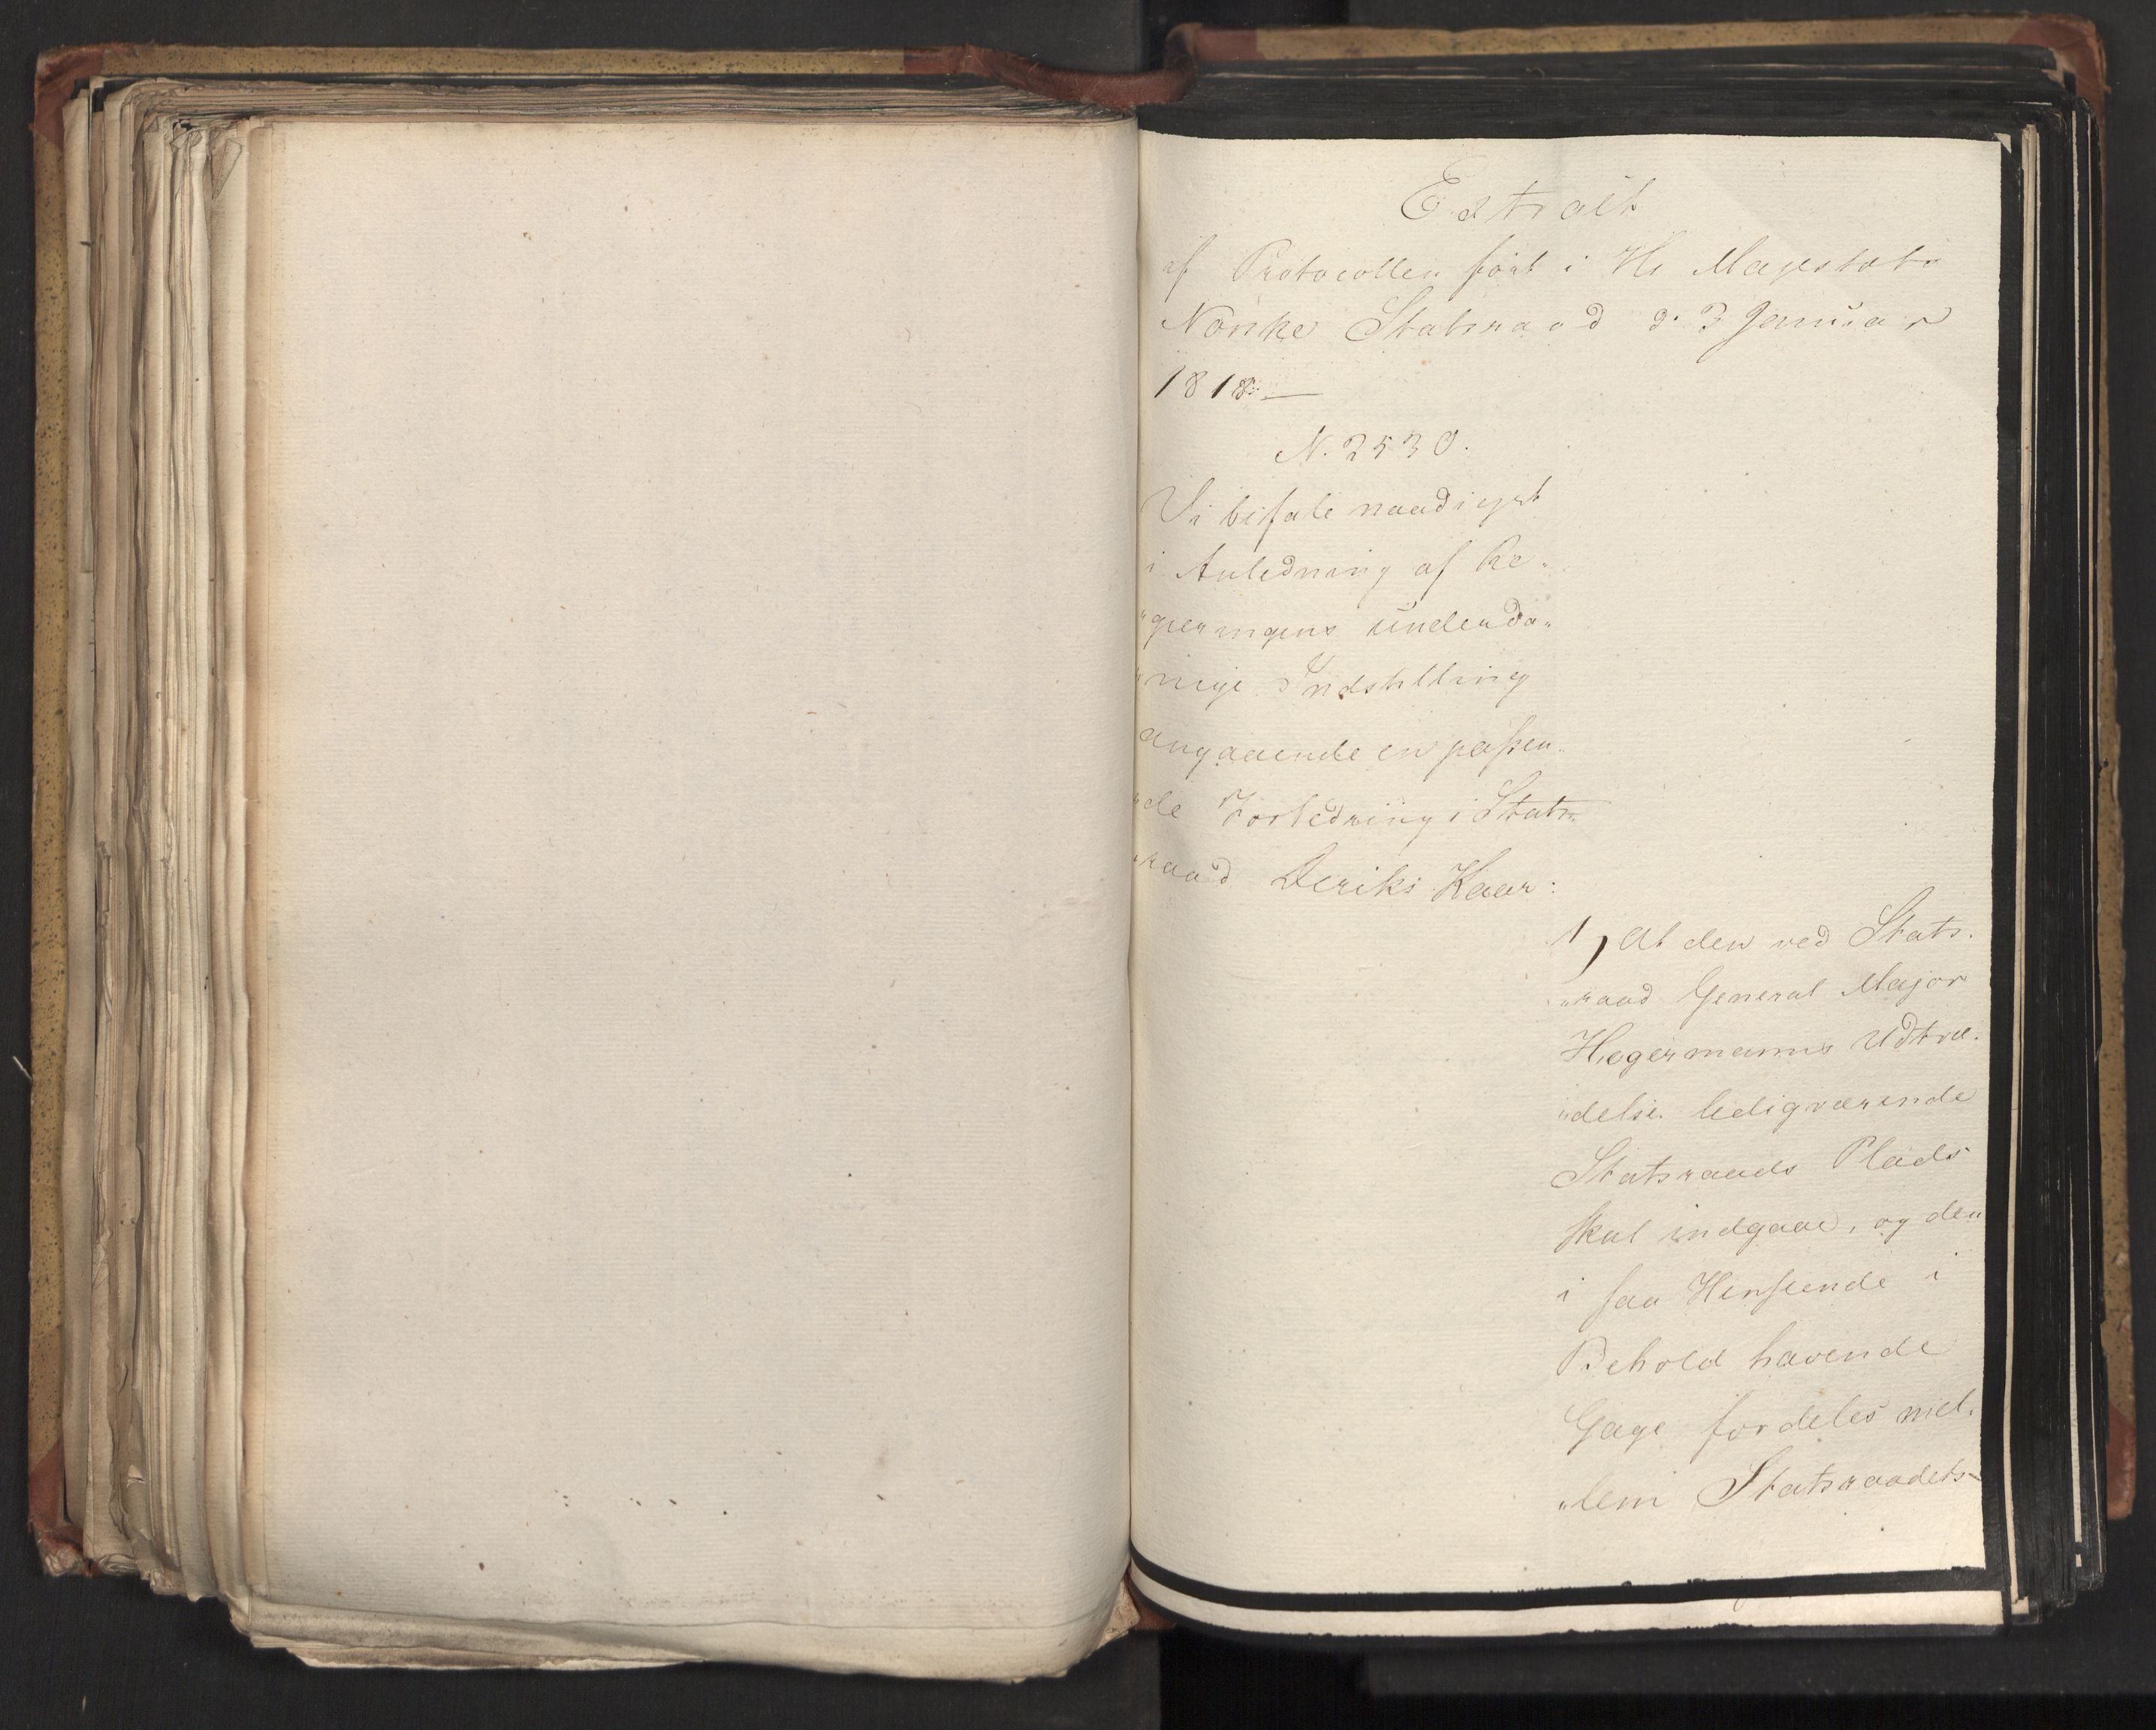 Extrait
af Protocollen fört i Hs Majestæts
Norske Statsraad d. 3 Januar
1818. —
N. 2530.
Vi bifale naadigst
i Anledning af Re„
„gieringens underda„
„nige Indstilling
angaaende en passen„
„de Forbedring i Stats„
„raad Diriks Kaar:
1, At den ved Stats„
„raad General Major
Hegermanns Udtræ„
„delse ledigværende
Statsraads Plads
skal indgaae, og den
i saa Henseende i
Behold havende
Gage fordeles mel„
„lem Statsraadets